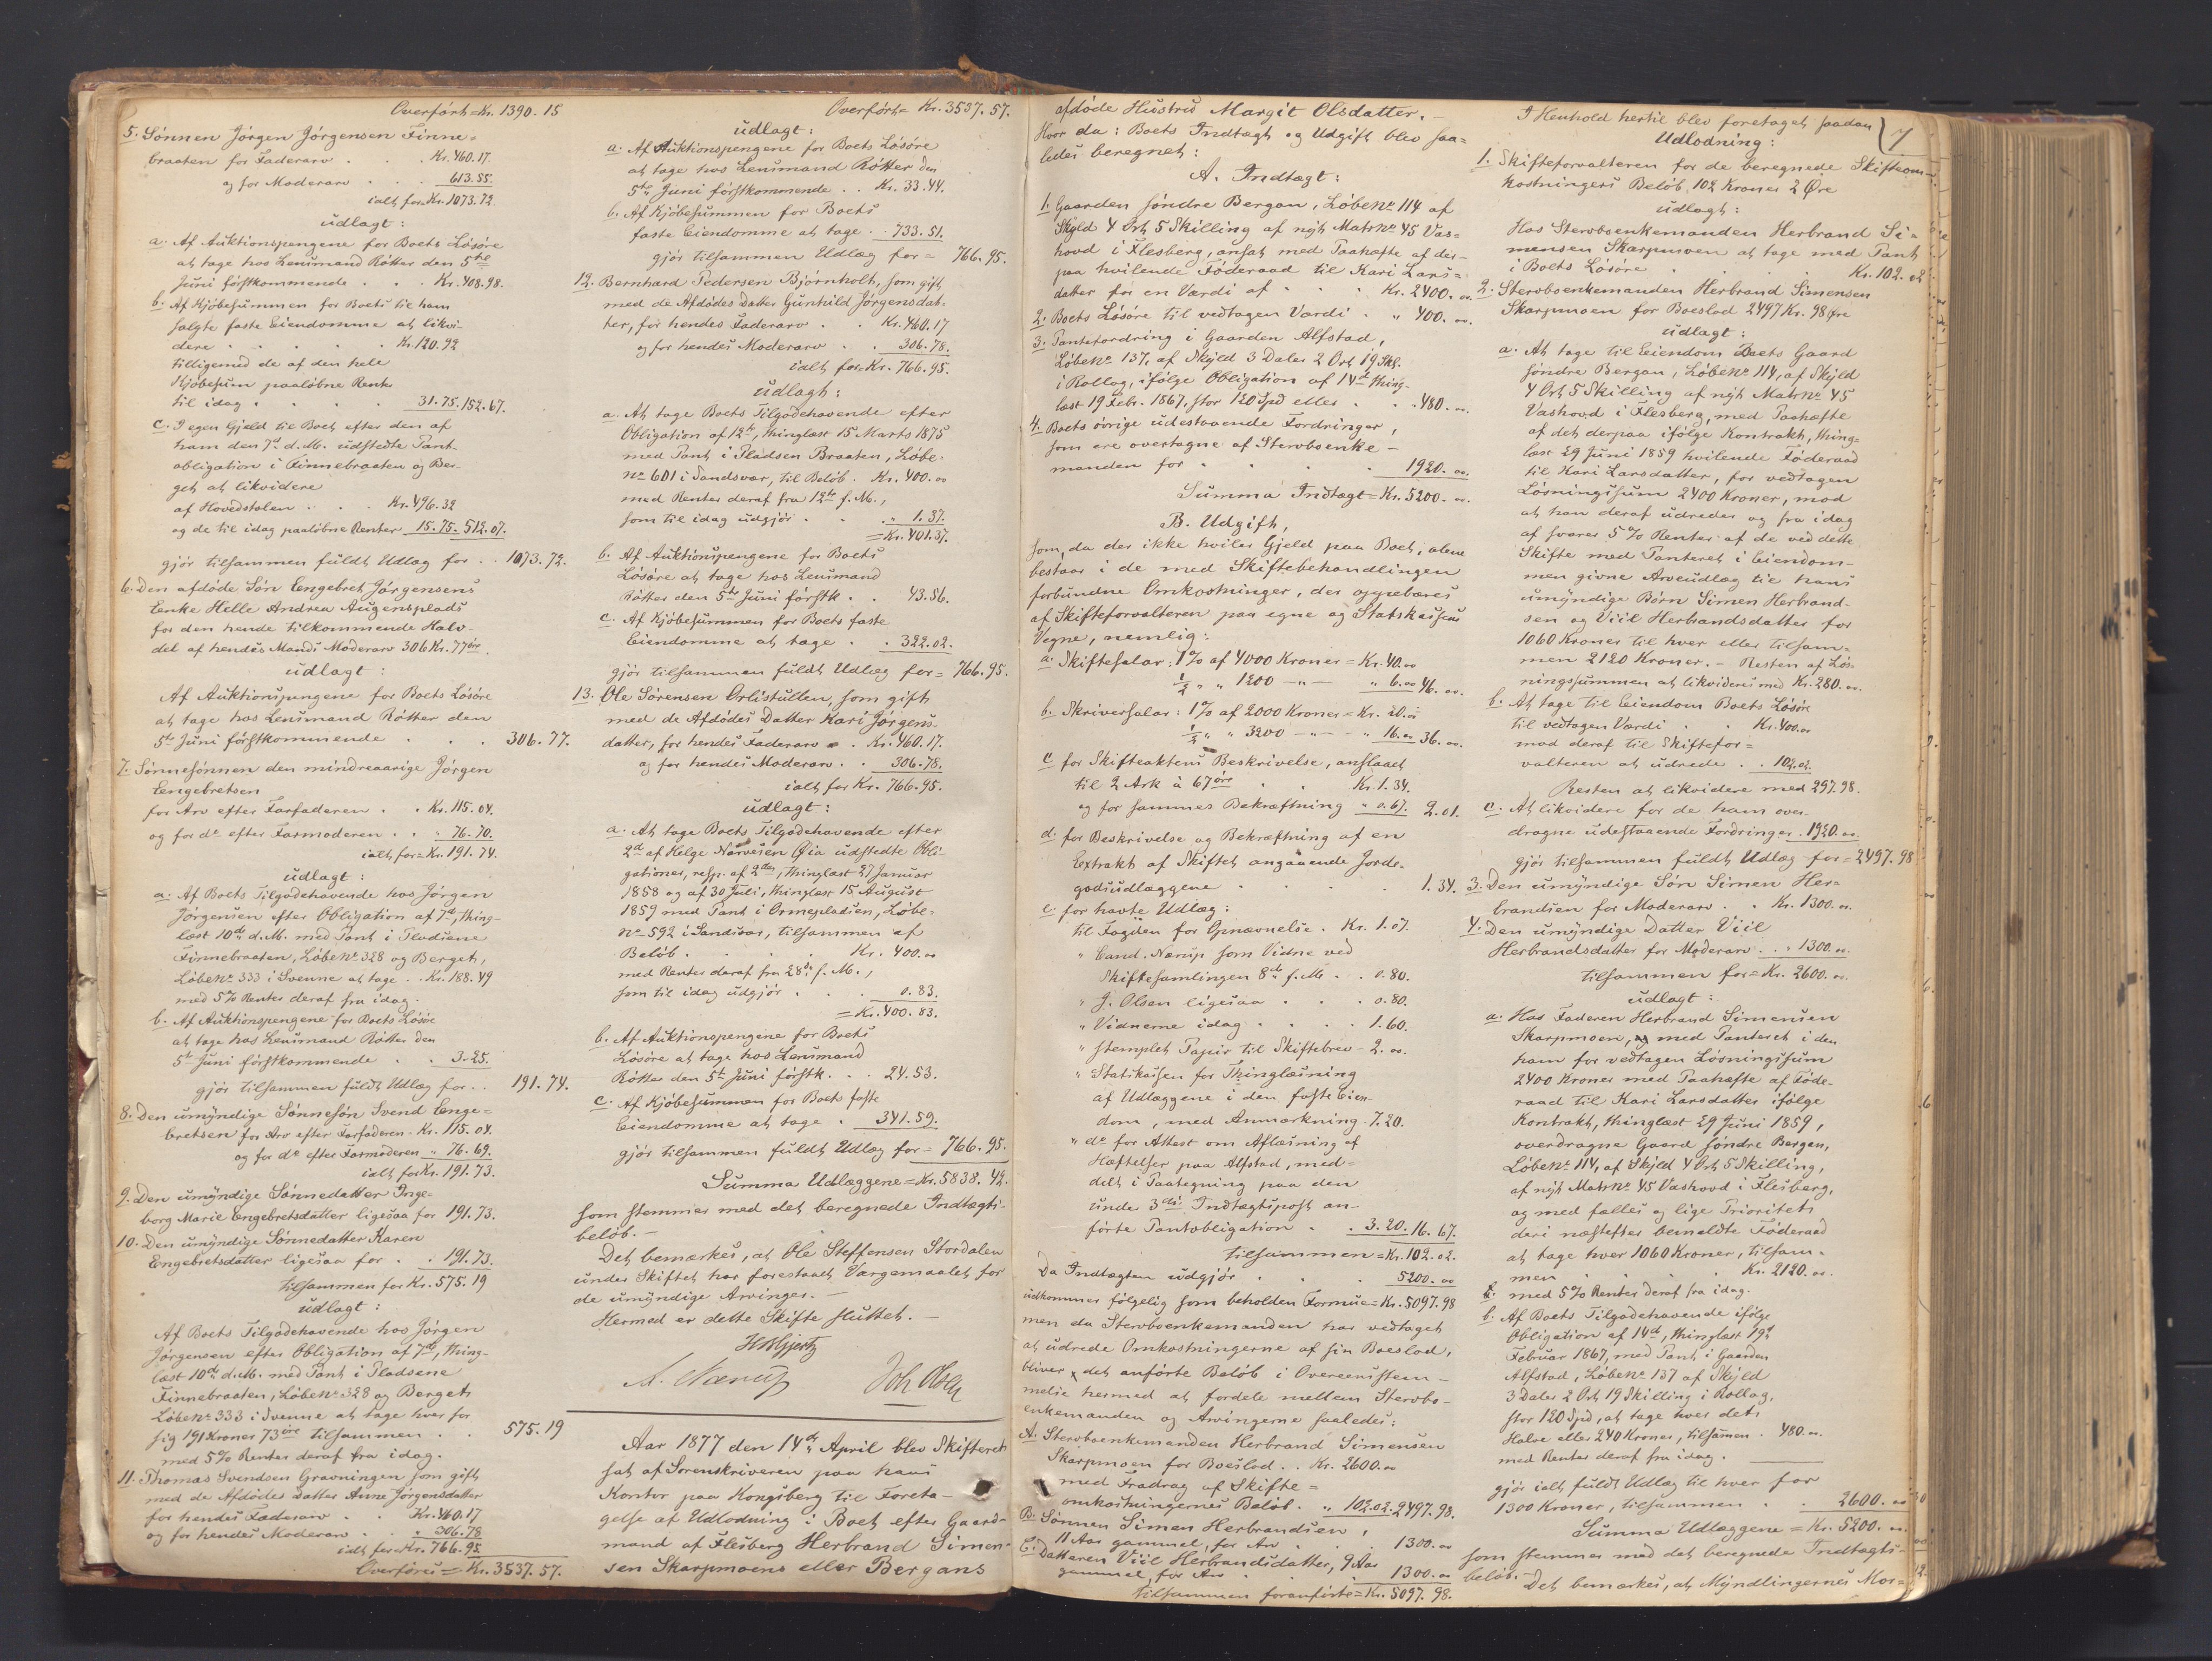 Overført=Kr. 1390.15
5. Sønnen Jørgen Jørgensen Finne-
braaten for Faderarv . . Kr. 460.17.
og for Moderarv . . 613.55.
ialt for Kr. 1073.72.
udlagt:
a. Af Auktionspengene for Boets Løsøre
at tage hos Lensmand Røtter den 5te
Juni førstkommende . . Kr. 408.98.
b. Af Kjøbesummen for Boets til ham
solgte faste Eiendomme at likvi-
dere . . . . Kr. 120.92
tilligemed de af den hele
Kjøbesum paaløbne Rente
til idag . . . 31.75. 152.67.
c. I egen Gjeld til Boet efter den af
ham den 7d d.M. udstedte Pant-
obligation i Finnebraaten og Ber-
get at likvidere
af Hovedstolen . . Kr. 496.32
og de til idag paaløbne Renter 15.75. 512.07.
gjør tilsammen fuldt Udlæg for . . 1073.72.
6. Den afdøde Søn Engebret Jørgensens
Enke Helle Andrea Augensplads
for den hende tilkommende Halv-
del af hendes Mands Moderarv 306 Kr. 77 øre.
udlagt:
Af Auktionspengene for Boets Løsøre
at tage hos Lensmand Røtter den
5te Juni førstkommende . . . 306.77.
7. Sønnesønnen den mindreaarige Jørgen
Engebretsen
for Arv efter Farfaderen . . Kr. 115.04.
og for do efter Farmoderen . . " 76.70.
ialt for=Kr. 191.74.
udlagt:
a. Af Boets Tilgodehavende hos Jørgen
Jørgensen efter Obligation af 7d, thing-
læst 10de d.M. med Pant i Pladsene
Finnebraaten, Løbe No 328 og Berget,
Løbe No 333 i Svenne at tage . . Kr. 188.49
med 5% Renter deraf fra idag.
b. Af Auktionspengene for Boets Løsøre
at tage hos Lensmand Røtter den
5te Juni førstkommende . . 3.25.
gjør tilsammen fuldt Udlæg for . . 191.74.
8. Den umyndige Sønnesøn Svend Enge-
bretsen for Arv efter Farfaderen . Kr. 115.04.
og for do efter Farmoderen " 76.69.
ialt for Kr. 191.73.
9. Den umyndige Sønnedatter Inge-
borg Marie Engebretsdatter ligesaa for 191.73.
10. Den umyndige Sønnedatter Karen
Engebretsdatter ligesaa for . . 191.73.
tilsammen for Kr. 575.19
udlagt:
Af Boets Tilgodehavende hos Jørgen
Jørgensen efter Obligation af 7d, thing-
læst 10de d.M. med Pant i Pladsene
Finnebraaten, Løbe No 328 og Berget,
Løbe No 333 i Svenne at tage hver for
sig 191 Kroner 73 øre tilsammen . . 575.19
med 5% Renter deraf fra idag.
11. Thomas Svendsen Gravningen som gift
med de Afdødes Datter Anne Jørgensdatter
for hendes Faderarv . . Kr. 460.17
og for hendes Moderarv . . " 306.78
ialt for Kr. 766.95
Overføres = Kr. 3537.57.
Overført= Kr. 3537.57.
udlagt:
a. Af Auktionspengene for Boets Løsøre
at tage hos Lensmand Røtter den
5te Juni førstkommende . . Kr. 33.44.
b. Af Kjøbesummen for Boets
faste Eiendomme at tage . . 733.51.
gjør tilsammen Udlæg for = 766.95.
12. Bernhard Pedersen Bjørnholt, som gift
med de Afdødes Datter Gunhild Jørgensdat-
ter, for hendes Faderarv . . Kr. 460.17
og for hendes Moderarv . . 306.78.
ialt for=Kr. 766.95.
udlagt:
a. At tage Boets Tilgodehavende efter
Obligation af 12te, thinglæst 15 Marts 1875
med Pant i Pladsen Braaten, Løbe-
No 601 i Sandsvær, til Beløb . Kr. 400.00
med Renter deraf fra 12te f.M.,
som til idag udgjør . . . " 1.37.
=Kr. 401.37.
b. Af Auktionspengene for Boets
Løsøre at tage hos Lensmand
Røtter den 5te Juni førstk. . . 43.56.
c. Af Kjøbesummen for Boets faste
Eiendomme at tage . . 322.02.
gjør tilsammen fuldt Udlæg for = 766.95.
13. Ole Sørensen Orlistullen som gift
med de Afdødes Datter Kari Jørgens-
datter, for hendes Faderarv . . Kr. 460.17.
og for hendes Moderarv . . 306.78.
ialt for Kr. 766.95.
udlagt:
a. At tage Boets Tilgodehavende efter
2d af Helge Narvesen Øia udstedte Obli-
gationer, resp. af 2den, thinglæst 27 Januar
1858 og af 30 Juli, thinglæst 15 August
1859 med Pant i Ormepladsen, Løbe-
No 592 i Sandsvær, tilsammen af
Beløb . . . . Kr. 400.00
med Renter deraf fra 28de f.M.,
som til idag udgjør . . . 0.83.
=Kr. 400.83.
b. Af Auktionspengene for Boets
Løsøre at tage hos Lensmand
Røtter den 5te Juni førstk. . . 24.53.
c. Af Kjøbesummen for Boets faste
Eiendomme at tage . 341.59.
gjør tilsammen fuldt Udlæg for = 766.95.
Summa Udlæggene=Kr. 5838.42.
som stemmer med det beregnede Indtægts-
beløb.—
Det bemærkes, at Ole Steffensen Stordalen
under Skiftet har forestaaet Værgemaalet for
de umyndige Arvinger.—
Hermed er dette Skifte sluttet.—
A. Nærup Joh Olsen
Aar 1877 den 14de April blev Skifteret
sat af Sorenskriveren paa hans
Kontor paa Kongsberg til Foreta-
gelse af Udlodning i Boet efter Gaard-
mand af Flesberg Herbrand Simen-
sen Skarpmoens eller Bergans
afdøde Hustru Margit Olsdatter.—
Hvor da: Boets Indtægt og Udgift blev saa-
ledes beregnet:
A. Indtægt:
1. Gaarden søndre Bergan, Løbe No 114 af
Skyld 4 Ort 5 Skilling af nyt Matr No 45 Vas-
hovd i Flesberg, ansat med Paahæfte af der-
paa hvilende Føderaad til Kari Lars-
datter for en Værdi af . . . Kr. 2400.00.
2. Boets Løsøre til vedtagen Værdi . " 400.00.
3. Pantefordring i Gaarden Alfstad,
Løbe No 137, af Skyld 3 Daler 2 Ort 19 Skl.
i Rollag, ifølge Obligation af 14de thing-
læst 19 Febr. 1867, stor 120 Spd eller . . " 480.00.
4. Boets øvrige udestaaende Fordringer,
som ere overtagne af Stervboenke-
manden for . . . . 1920.00.
Summa Indtægt=Kr. 5200.00.
B. Udgift,
som, da der ikke hviler Gjeld paa Boet, alene
bestaar i de med Skiftebehandlingen
forbundne Omkostninger, der oppebæres
af Skifteforvalteren paa egne og Statskassens
Vegne, nemlig:
a. Skiftesalær: 1% af 4000 Kroner = Kr. 40.00
1/2 " " 1200 —"— " 6.00 46.00.
b. Skriversalær: 1% af 2000 Kroner = Kr. 20.00
1/2 " " 3200 —"— " 16.00 36.00.
c for Skifteaktens Beskrivelse, anslaaet
til 2 Ark à 67 øre . . Kr. 1.34.
og for sammes Bekræftning " 0.67. 2.01.
d. for Beskrivelse og Bekræftning af en
Extrakt af Skiftet angaaende Jorde-
godsudlæggene . . . . 1.34.
e. for havte Udlæg:
til Fogden for Opnævnelse . Kr. 1.07.
" Cand. Nærup som Vidne ved
Skiftesamlingen 8de f.M. . . 0.80.
" J. Olsen ligesaa . . . 0.80.
" Vidnerne idag . . . . 1.60.
" stemplet Papir til Skiftebrev - 2.00.
" Statskassen for Thinglæsning
af Udlæggene i den faste Eien-
dom, med Anmærkning . 7.20.
" do for Attest om Aflæsning af
Hæftelser paa Alfstad, med-
delt i Paategning paa den
under 3die Indtægtspost an-
førte Pantobligation . . 3.20. 16.67.
tilsammen=Kr. 102.02.
Da Indtægten udgjør . . . 5200.00
udkommer følgelig som beholden Formue=Kr. 5097.98
men da Stervboenkemanden har vedtaget
at udrede Omkostningerne af sin Boeslod,
bliver det anførte Beløb i Overensstem-
melse hermed at fordele mellem Stervbo-
enkemanden og Arvingerne saaledes:
A. Stervboenkemanden Herbrand Simensen
Skarpmoen for Boeslod . . Kr. 2600.00
med Fradrag af Skifte-
omkostningernes Beløb . " 102.02. 2497.98.
B. Sønnen Simen Herbrandsen,
11 Aar gammel, for Arv . . . 1300.00
C. Datteren Viil Herbrandsdatter, 9 Aar
gammel, for Arv . . . . 1300.00
tilsammen foranførte=Kr. 5097.98.
7
I Henhold hertil blev foretaget saadan
Udlodning:
1. Skifteforvalteren for de beregnede Skifteom-
kostningers Beløb, 102 Kroner 2 Øre
udlagt:
Hos Stervboenkemanden Herbrand Si-
mensen Skarpmoen at tage med Pant
i Boets Løsøre . . . . Kr. 102.02
2. Stervboenkemanden Herbrand Simensen
Skarpmoen for Boeslod 2497 Kr. 98 Øre
udlagt:
a. At tage til Eiendom Boets Gaard
søndre Bergan, Løbe No 114, af Skyld
4 Ort 5 Skilling af nyt Matr No 45
Vashovd i Flesberg, med Paahæfte
af det derpaa ifølge Kontrakt, thing-
læst 29 Juni 1859 hvilende Føderaad
til Kari Larsdatter, for vedtagen
Løsningssum 2400 Kroner, mod
at han deraf udreder og fra idag
af svarer 5% Renter af de ved dette
Skifte med Panteret i Eiendom-
men givne Arveudlæg til hans
umyndige Børn Simen Herbrand-
sen og Viil Herbrandsdatter for
1060 Kroner til hver eller tilsam-
men 2120 Kroner.— Resten af Løs-
ningssummen at likvideres med Kr. 280.00.
b. At tage til Eiendom Boets Løsøre
til vedtagen Værdi . . Kr. 400.00
mod deraf til Skiftefor-
valteren at udrede . . 102.02.
Resten at likvidere med 297.98.
c. At likvidere for de ham over-
dragne udestaaende Fordringer . 1920.00.
gjør tilsammen fuldt Udlæg for = 2497.98
3. Den umyndige Søn Simen Her-
brandsen for Moderarv . . Kr. 1300.00.
4. Den umyndige Datter Viil
Herbrandsdatter for Moderarv . . " 1300.00.
tilsammen for=Kr. 2600.00.
udlagt:
a. Hos Faderen Herbrand Simensen
Skarpmoen, med Panteret i den
ham for vedtagen Løsningssum
2400 Kroner med Paahæfte af Føde-
raad til Kari Larsdatter ifølge
Kontrakt, thinglæst 29 Juni 1859,
overdragne Gaard søndre Bergan,
Løbe No 114, af Skyld 4 Ort 5 Skilling,
af nyt Matr No 45 Vashovd i Flesberg,
og med fælles og lige Prioritet
deri næstefter bemeldte Føderaad
at tage hver 1060 Kroner, tilsam-
men . . . . Kr. 2120.00.
med 5% Renter deraf fra idag.
b. Af Boets Tilgodehavende ifølge
Obligation af 14de, thinglæst 19de
Februar 1867, med Pant i Gaarden
Alfstad, Løbe No 137 af Skyld
3 Daler 2 Ort 19 Skilling i Rollag,
stor 120 Spd, at tage hver det
Halve eller 240 Kroner, tilsammen . 480.00.
med Renter deraf fra idag.
gjør ialt fuldt Udlæg til hver for
1300 Kroner, tilsammen . . 2600.00
Summa Udlæggene = Kr. 5200.00.
som stemmer med det beregnede Indtægts-
beløb.—
Det bemærkes, at Myndlingernes Mor-